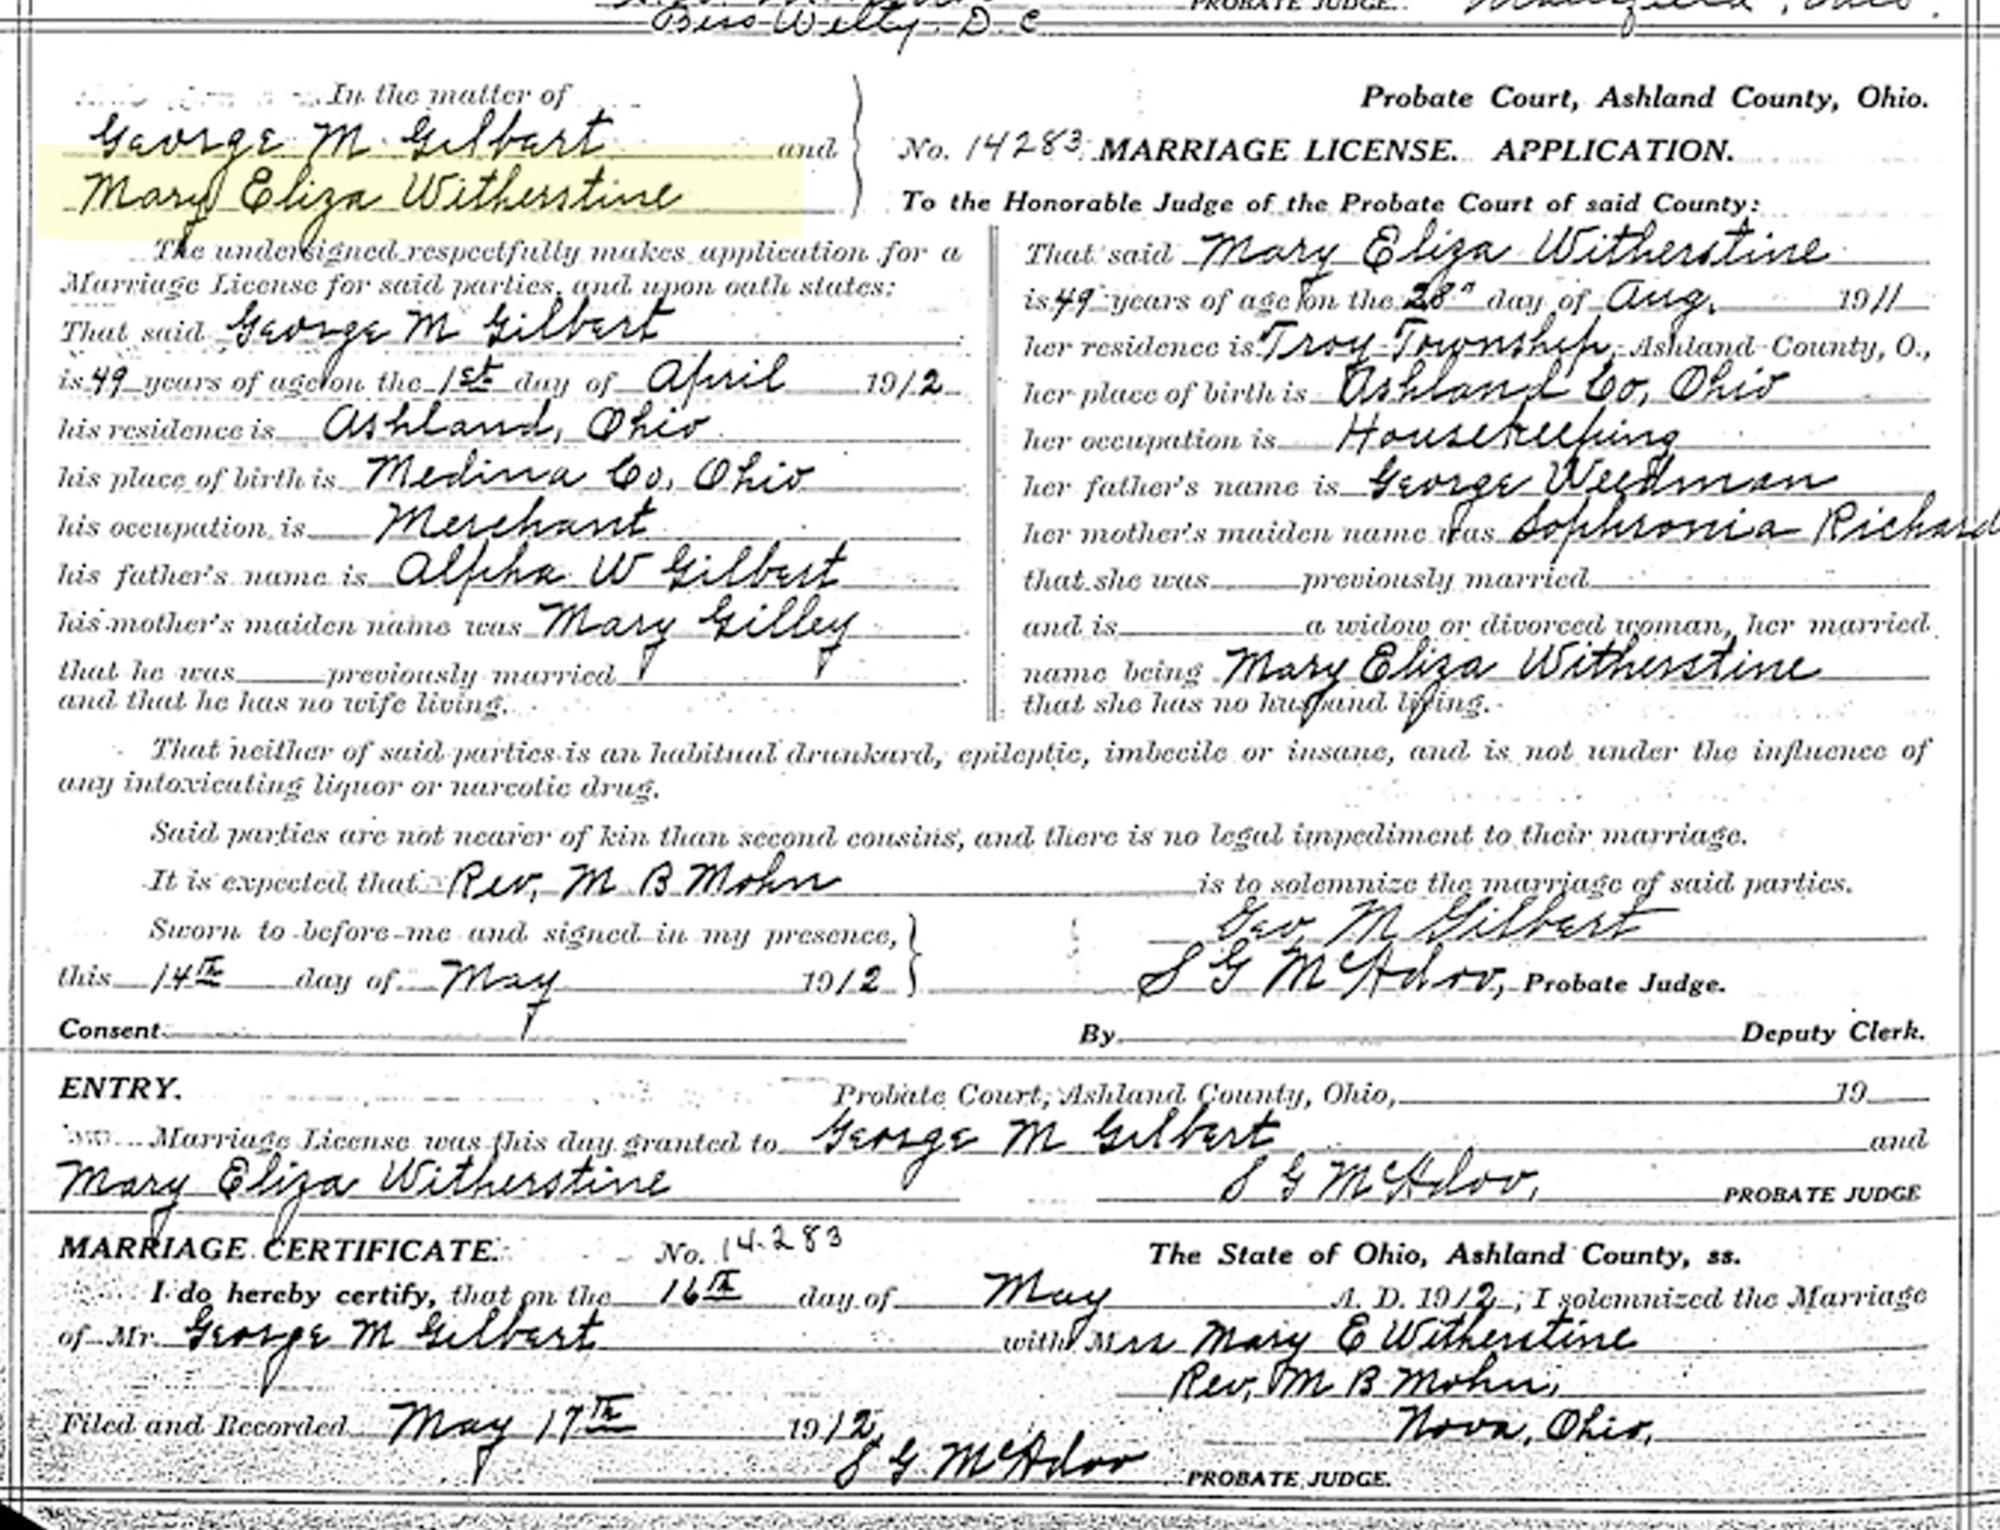 Bess Welty, D. C
PROBATE JUDGE.
In the matter of
George M Gilbert and
Mary Eliza Witherstine
Probate Court, Ashland County, Ohio.
No. 14283 MARRIAGE LICENSE. APPLICATION.
To the Honorable Judge of the Probate Court of said County:
The undersigned respectfully makes application for a
Marriage License for said parties, and upon oath states:
That said George M Gilbert
is 49 years of age on the 1st day of April 1912
his residence is Ashland, Ohio
his place of birth is Medina Co, Ohio
his occupation is Merchant
his father's name is Alpha W Gilbert
his mother's maiden name was Mary Gilley
that he was previously married
and that he has no wife living.
That said Mary Eliza Witherstine
is 49 years of age on the 28" day of Aug. 1911
her residence is Troy Township, Ashland County, O.,
her place of birth is Ashland Co, Ohio
her occupation is Housekeeping
her father's name is George Weedman
her mother's maiden name was Sophronia Richard
that she was previously married
and is a widow or divorced woman, her married
name being Mary Eliza Witherstine
that she has no husband living.
That neither of said parties is an habitual drunkard, epileptic, imbecile or insane, and is not under the influence of
any intoxicating liquor or narcotic drug.
Said parties are not nearer of kin than second cousins, and there is no legal impediment to their marriage.
It is expected that Rev, M B Mohn is to solemnize the marriage of said parties.
Sworn to before me and signed in my presence,
this 14th day of May 1912
Geo, M Gilbert
S G McAdoo, Probate Judge.
Consent By Deputy Clerk.
ENTRY. Probate Court, Ashland County, Ohio, 19
Marriage License was this day granted to George M Gilbert and
Mary Eliza Witherstine S G McAdoo, PROBATE JUDGE
MARRIAGE CERTIFICATE. No. 14283 The State of Ohio, Ashland County, ss.
I do hereby certify, that on the 16th day of May A. D. 1912, I solemnized the Marriage
of Mr. George M Gilbert with Mrs Mary E Witherstine
Rev, M B Mohn,
Filed and Recorded May 17th 1912, Nova, Ohio,
S G McAdoo PROBATE JUDGE.